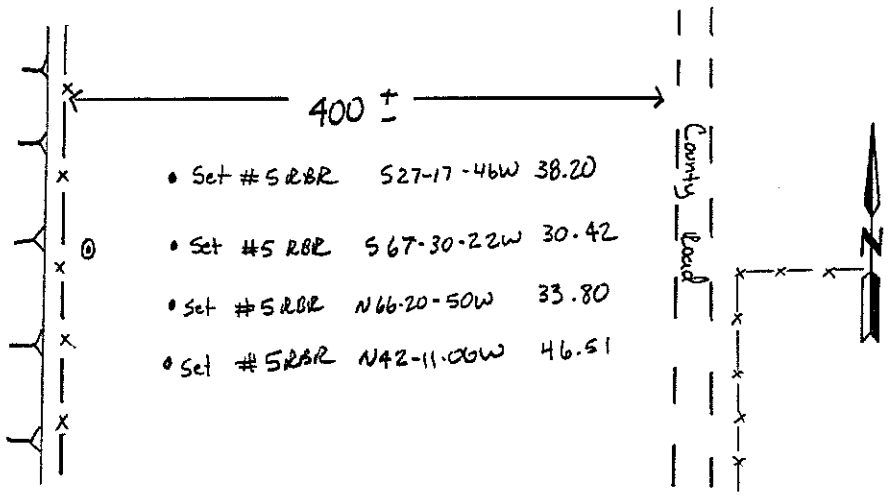 400 ±
• Set #5 RBR S27-17-46W 38.20
• Set #5 RBR S67-30-22W 30.42
• Set #5 RBR N66-20-50W 33.80
• Set #5 RBR N42-11-06W 46.51
County Road
N